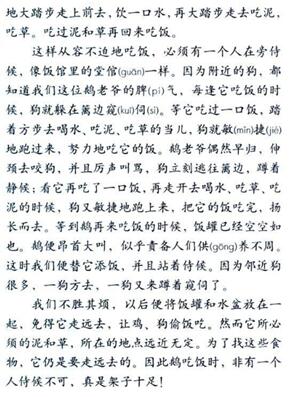 地大踏步走上前去，饮一口水，再大踏步走去吃泥，
吃草。吃过泥和草再回来吃饭。
这样从容不迫地吃饭，必须有一个人在旁侍
候，像饭馆里的堂倌(guān)一样。因为附近的狗，都
知道我们这位鹅老爷的脾(pí)气，每逢它吃饭的时
候，狗就躲在篱边窥(kuī)伺(sì)。等它吃过一口饭，踏
着方步去喝水、吃泥、吃草的当儿，狗就敏(mǐn)捷(jié)
地跑过来，努力地吃它的饭。鹅老爷偶然早归，伸
颈去咬狗，并且厉声叫骂，狗立刻逃往篱边，蹲着
静候；看它再吃了一口饭，再走开去喝水、吃草、吃
泥的时候，狗又敏捷地跑上来，把它的饭吃完，扬
长而去。等到鹅再来吃饭的时候，饭罐已经空空如
也。鹅便昂首大叫，似乎责备人们供(gōng)养不周。
这时我们便替它添饭，并且站着侍候。因为邻近狗
很多，一狗方去，一狗又来蹲着窥伺了。
我们不胜其烦，以后便将饭罐和水盆放在一
起，免得它走远去，让鸡、狗偷饭吃。然而它所必
须的泥和草，所在的地点远近无定。为了找这些食
物，它仍是要走远去的。因此鹅吃饭时，非有一个
人侍候不可，真是架子十足！